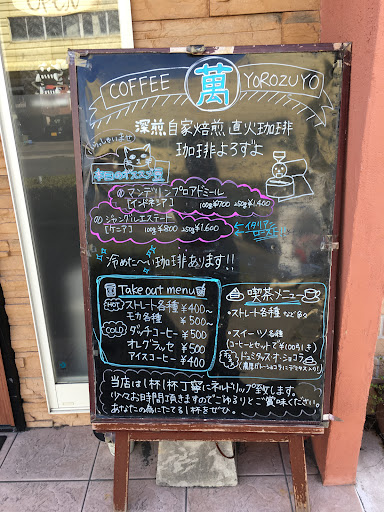 OPEN
COFFEE 萬 YOROZUYO
深煎自家焙煎 直火珈琲
珈琲よろずよ
いらっしゃいませ
本日のオススメ豆
① マンデリンプロアドミール
[インドネシア] 100g ¥700 250g ¥1,400
② ジャングルエステート
[ケニア] 100g ¥800 250g ¥1,600
←イタリアンロースト!!
冷めた〜い珈琲あります!!
Take out menu
HOT ストレート各種 ¥400〜
モカ各種 ¥500〜
COLD ダッチコーヒー ¥500
オレグラッセ ¥500
アイスコーヒー ¥400
喫茶メニュー
・ストレート各種 などなど
・スイーツ各種
(コーヒーとセットで¥100引き)
ドミタス・オ・ショコラ
当店は1杯1杯丁寧にネルドリップ致します。
少々お時間頂きますのでごゆるりとご賞味ください。
あなたの為にたてる1杯をぜひ。